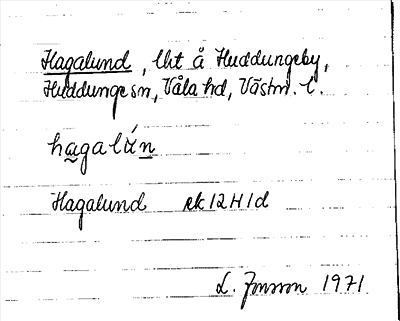 Hagalund, lht å Huddungeby,
Huddunge sn, Våla hd, Västm. l.
hagalún
Hagalund ek 12H1d
L. Jonson 1971